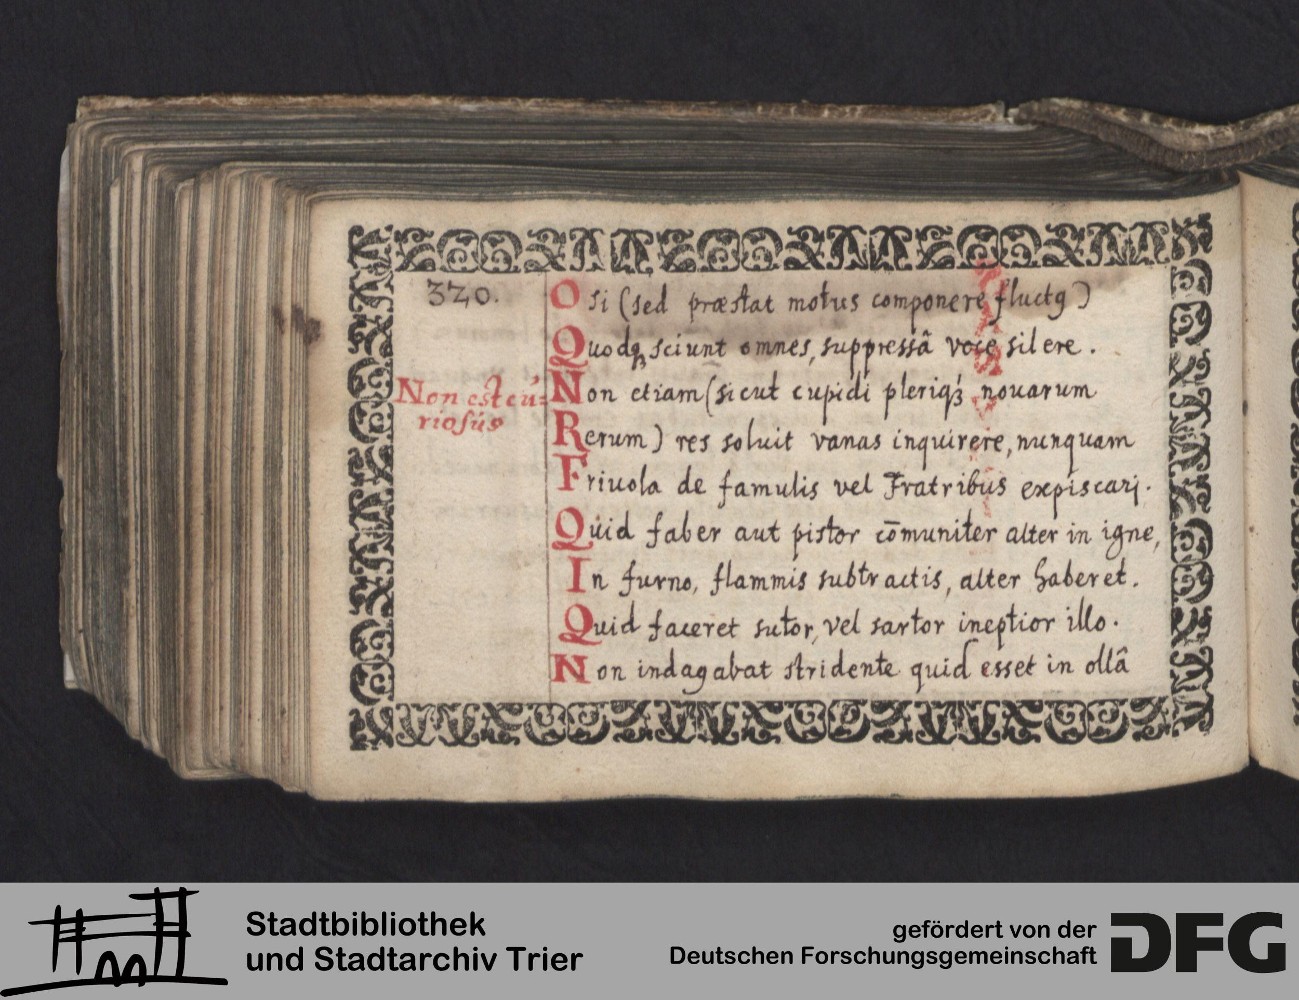 320.
O si (sed præstat motus componere fluctꝰ)
Quodq; sciunt omnes, suppressâ voce silere.
Non est cú=
riosús
Non etiam (sicut cupidi pleriq; novarum
Rerum) res soluit vanas inquirere, nunquam
Friuola de famulis vel Fratribus expiscarj.
Quid faber aut pistor cõmuniter alter in igne,
In furno, flammis subtractis, alter haberet.
Quid faceret sutor, vel sartor ineptior illo.
Non indagabat stridente quid esset in ollâ
Stadtbibliothek
und Stadtarchiv Trier
gefördert von der
Deutschen Forschungsgemeinschaft
DFG